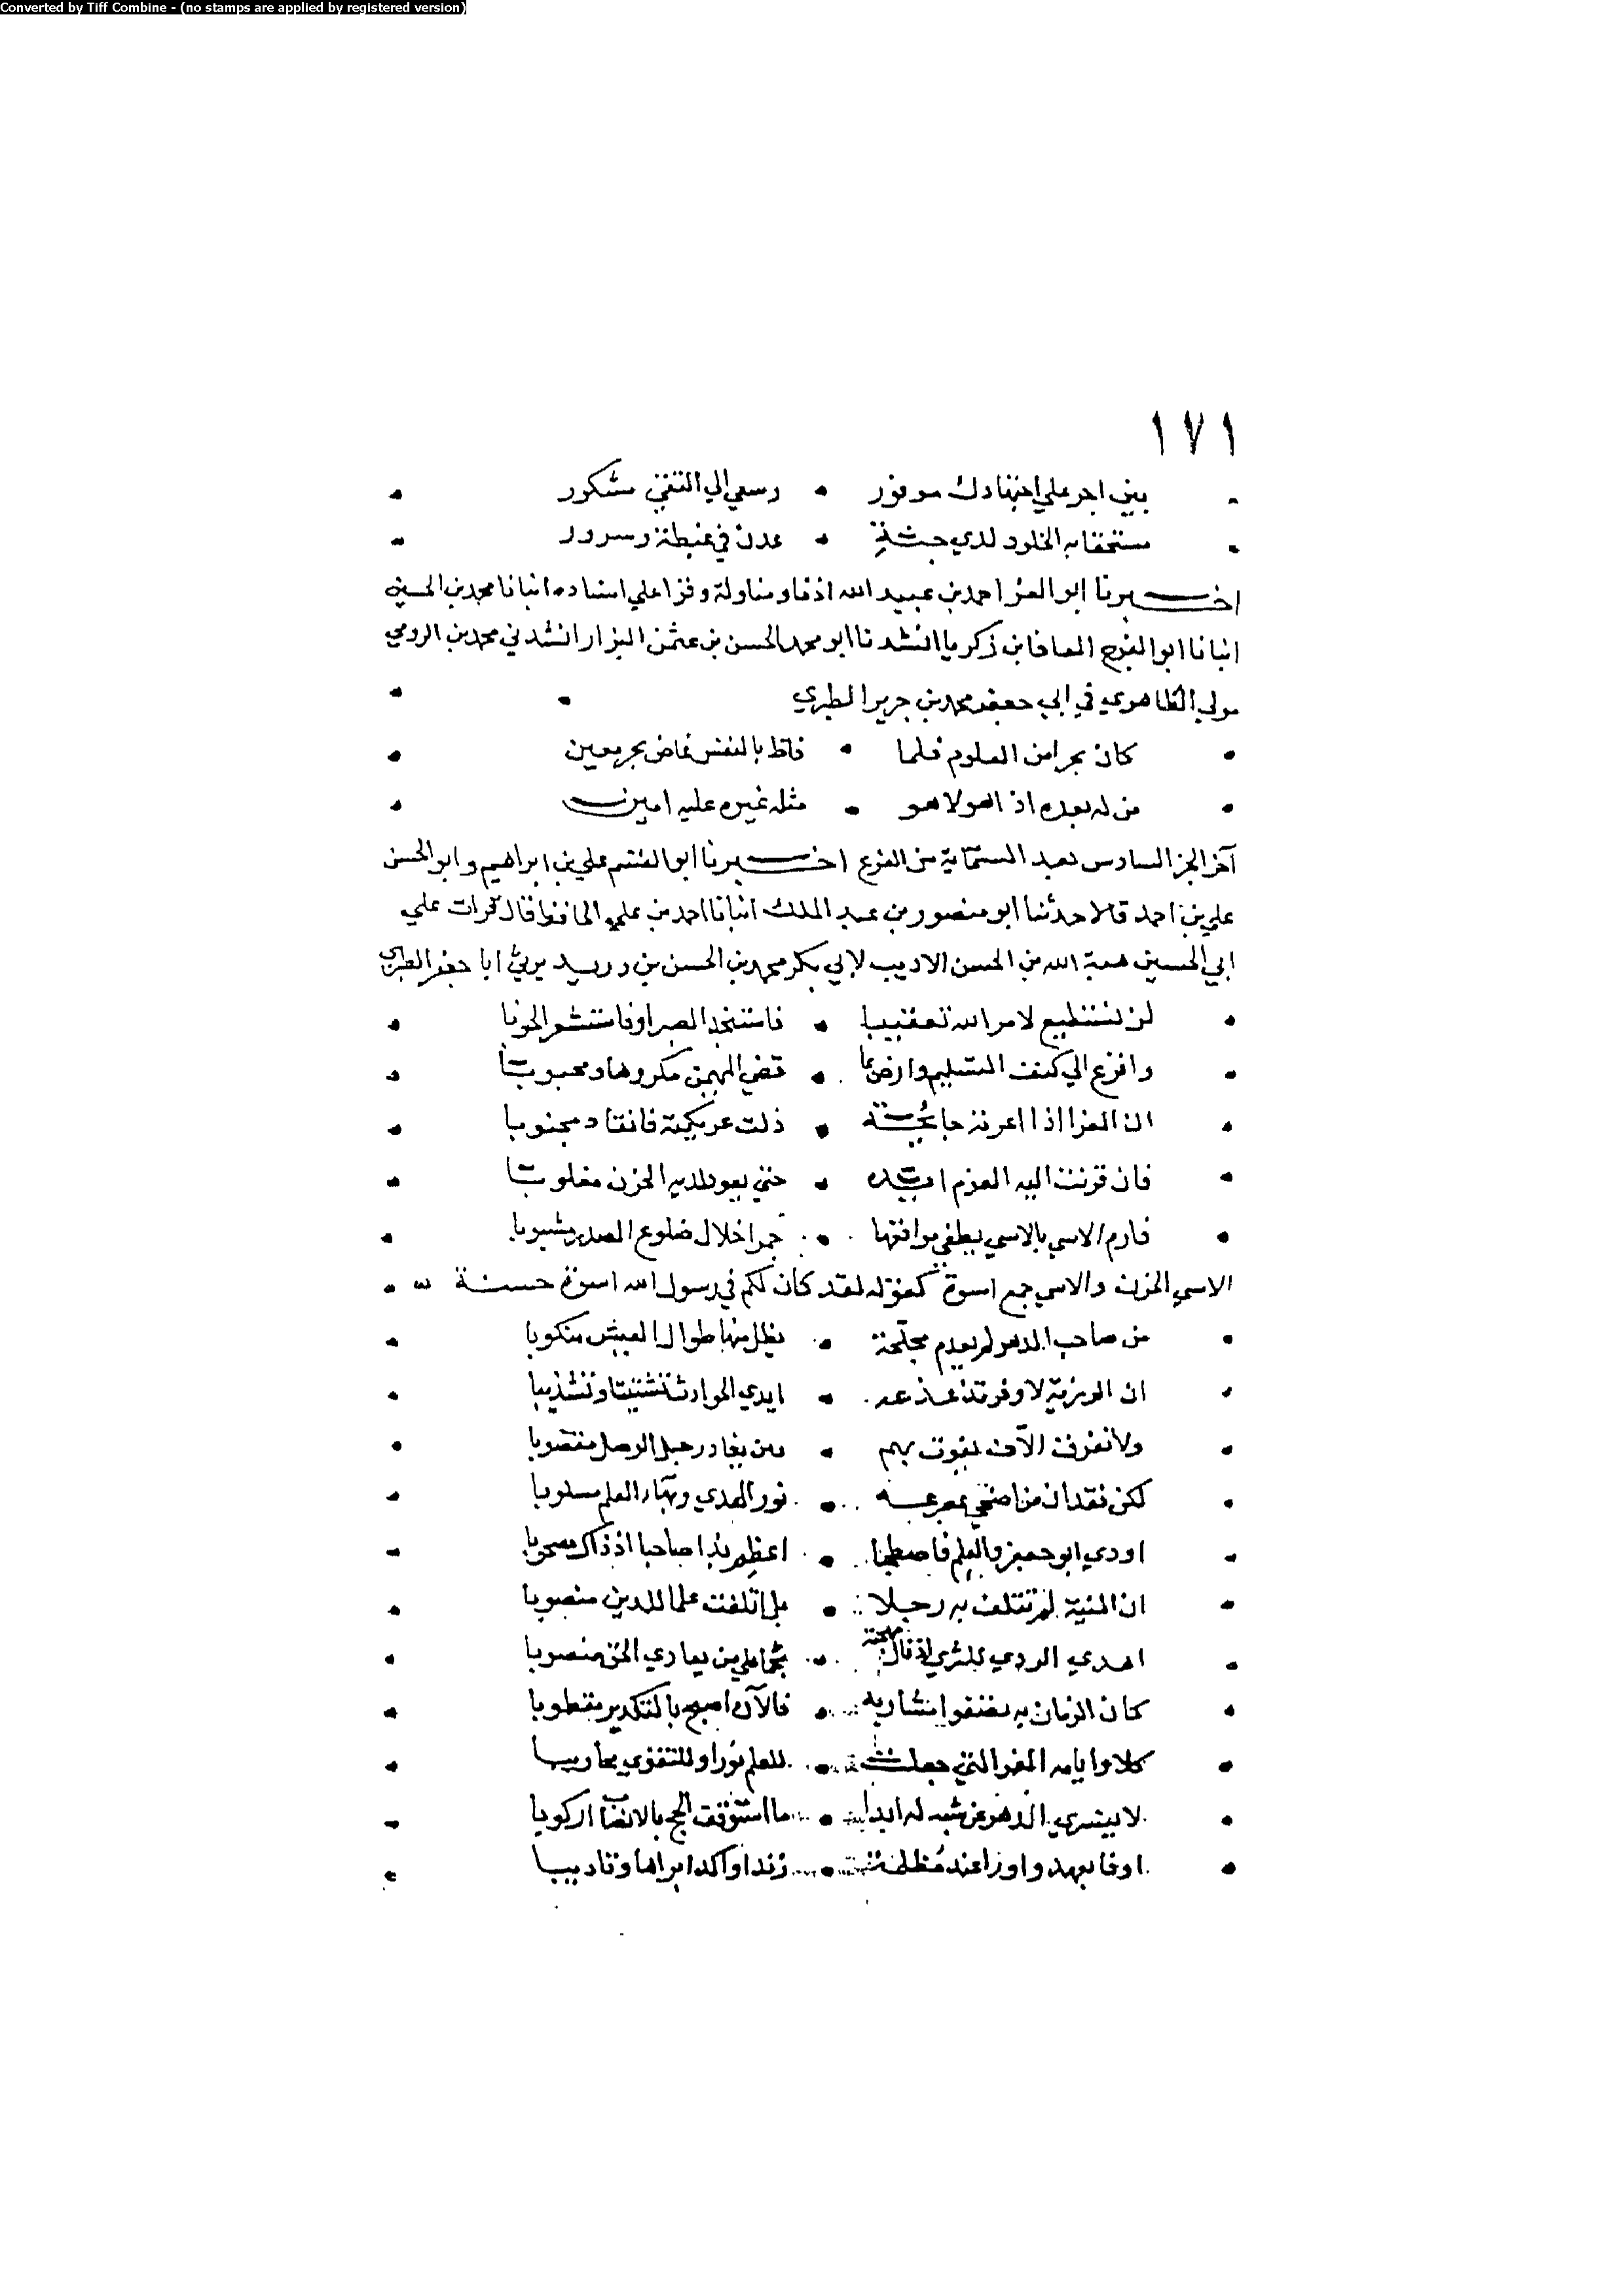 Converted by Tiff Combine - (no stamps are applied by registered version)
١٧١
بين اجر علي اجتهادك موفور • وسعي الي التقي مشكور
مستحقا به الخلود لدي جنة • عدن في غبطة وسرور
اخبرنا ابو العز احمد بن عبيد الله اذنا ومناولة وقرا علي اسناده انبانا محمد بن الحسين
انبانا ابو الفرج المعافا بن زكريا انشدنا ابو محمد الحسن بن عثمن البزار انشدني محمد بن الرومي
مولي الطاهري في ابي جعفر محمد بن جرير الطبري
كان بحرا من العلوم فلما • فاظ بالنفس غاض بحر معين
من له بعده اذا هو لا هو • مثله غيره عليه امين
آخر الجز السادس بعد الستماية من الفرع اخبرنا ابو القسم علي بن ابراهيم وابو الحسن
علي بن احمد قالا حدثنا ابو منصور بن عبد الملك انبانا احمد بن علي الحافظ قال قرات علي
ابي الحسين هبة الله بن الحسن الاديب لابي بكر محمد بن الحسن بن دريد يرثي ابا جعفر الطبري
لن تستطيع لامر الله تعقيبا • فاستنجد الصبر او فاستشعر الحوبا
وافزع الي كنف التسليم وارض بما • قضي المهيمن مكروها ومحبوبا
ان العزا اذا اعزته جايحة • ذلت عريكته فانقاد مجنوبا
فان قرنت اليه العزم ايده • حتي يعود لديه الحزن مغلوبا
فارم الاسي بالاسي يطفي مواقعها • جمرا خلال ضلوع الصدر مشبوبا
الاسي الحزن والاسي جمع اسوة كقوله لقد كان لكم في رسول الله اسوة حسنة
من صاحب الدهر لم يعدم مجلحة • يظل منها طوال العيش منكوبا
ان الرزية لا وفر تذعذعه • ايدي الحوادث تشتيتا وتشذيبا
ولا تفرق الآف يفوت بهم • بين يغادر حبل الوصل مقضوبا
لكن فقدان من اضحي بمصرعه • نور الهدي وبهاء العلم مسلوبا
اودي ابو جعفر والعلم فاصطحبا • اعظم بذا صاحبا اذ ذاك مصحوبا
ان المنية لم تتلف به رجلا • بل اتلفت علما للدين منصوبا
اهدي الردي للثري اذ نال مهجته • نجما علي من يعادي الحق مصبوبا
كان الزمان به تصفو مشاربه • فالآن اصبح بالتكدير مقطوبا
كلا وايامه الغر التي جعلت • للعلم نورا وللتقوي محاريبا
لا ينسري الدهر عن شبه له ابدا • ما استوقف الحج بالانصاب اركوبا
اوفا بعهد واورا عند مظلمة • زندا وآكد ابراما وتاديبا